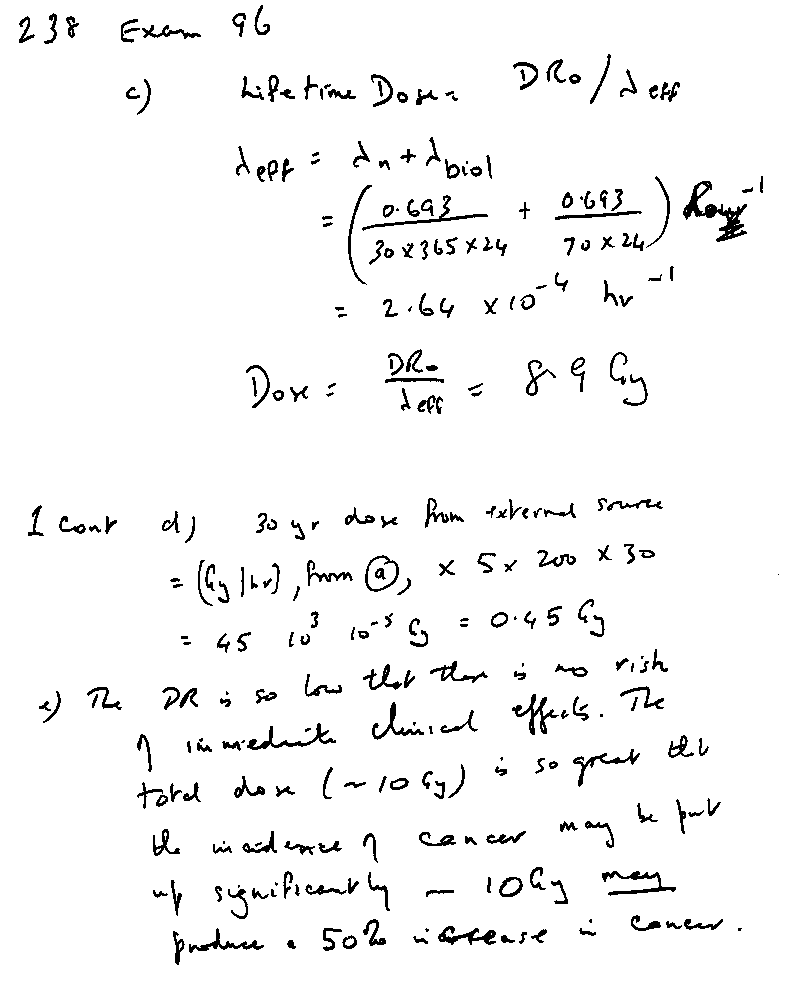 238 Exam 96
c) Lifetime Dose = DR₀/λeff
λeff = λn + λbiol
= (0.693/(30 x 365 x 24) + 0.693/(70 x 24)) hour⁻¹
= 2.64 x 10⁻⁴ hr⁻¹
Dose = DR₀/λeff = 8.9 Gy
1 cont d) 30 yr dose from external source
= (Gy/hr), from (a), x 5 x 200 x 30
= 45 10³ 10⁻⁵ Gy = 0.45 Gy
e) The DR is so low that there is no risk
of immediate clinical effects. The
total dose (~10 Gy) is so great that
the incidence of cancer may be put
up significantly – 10 Gy may
produce a 50% increase in cancer.